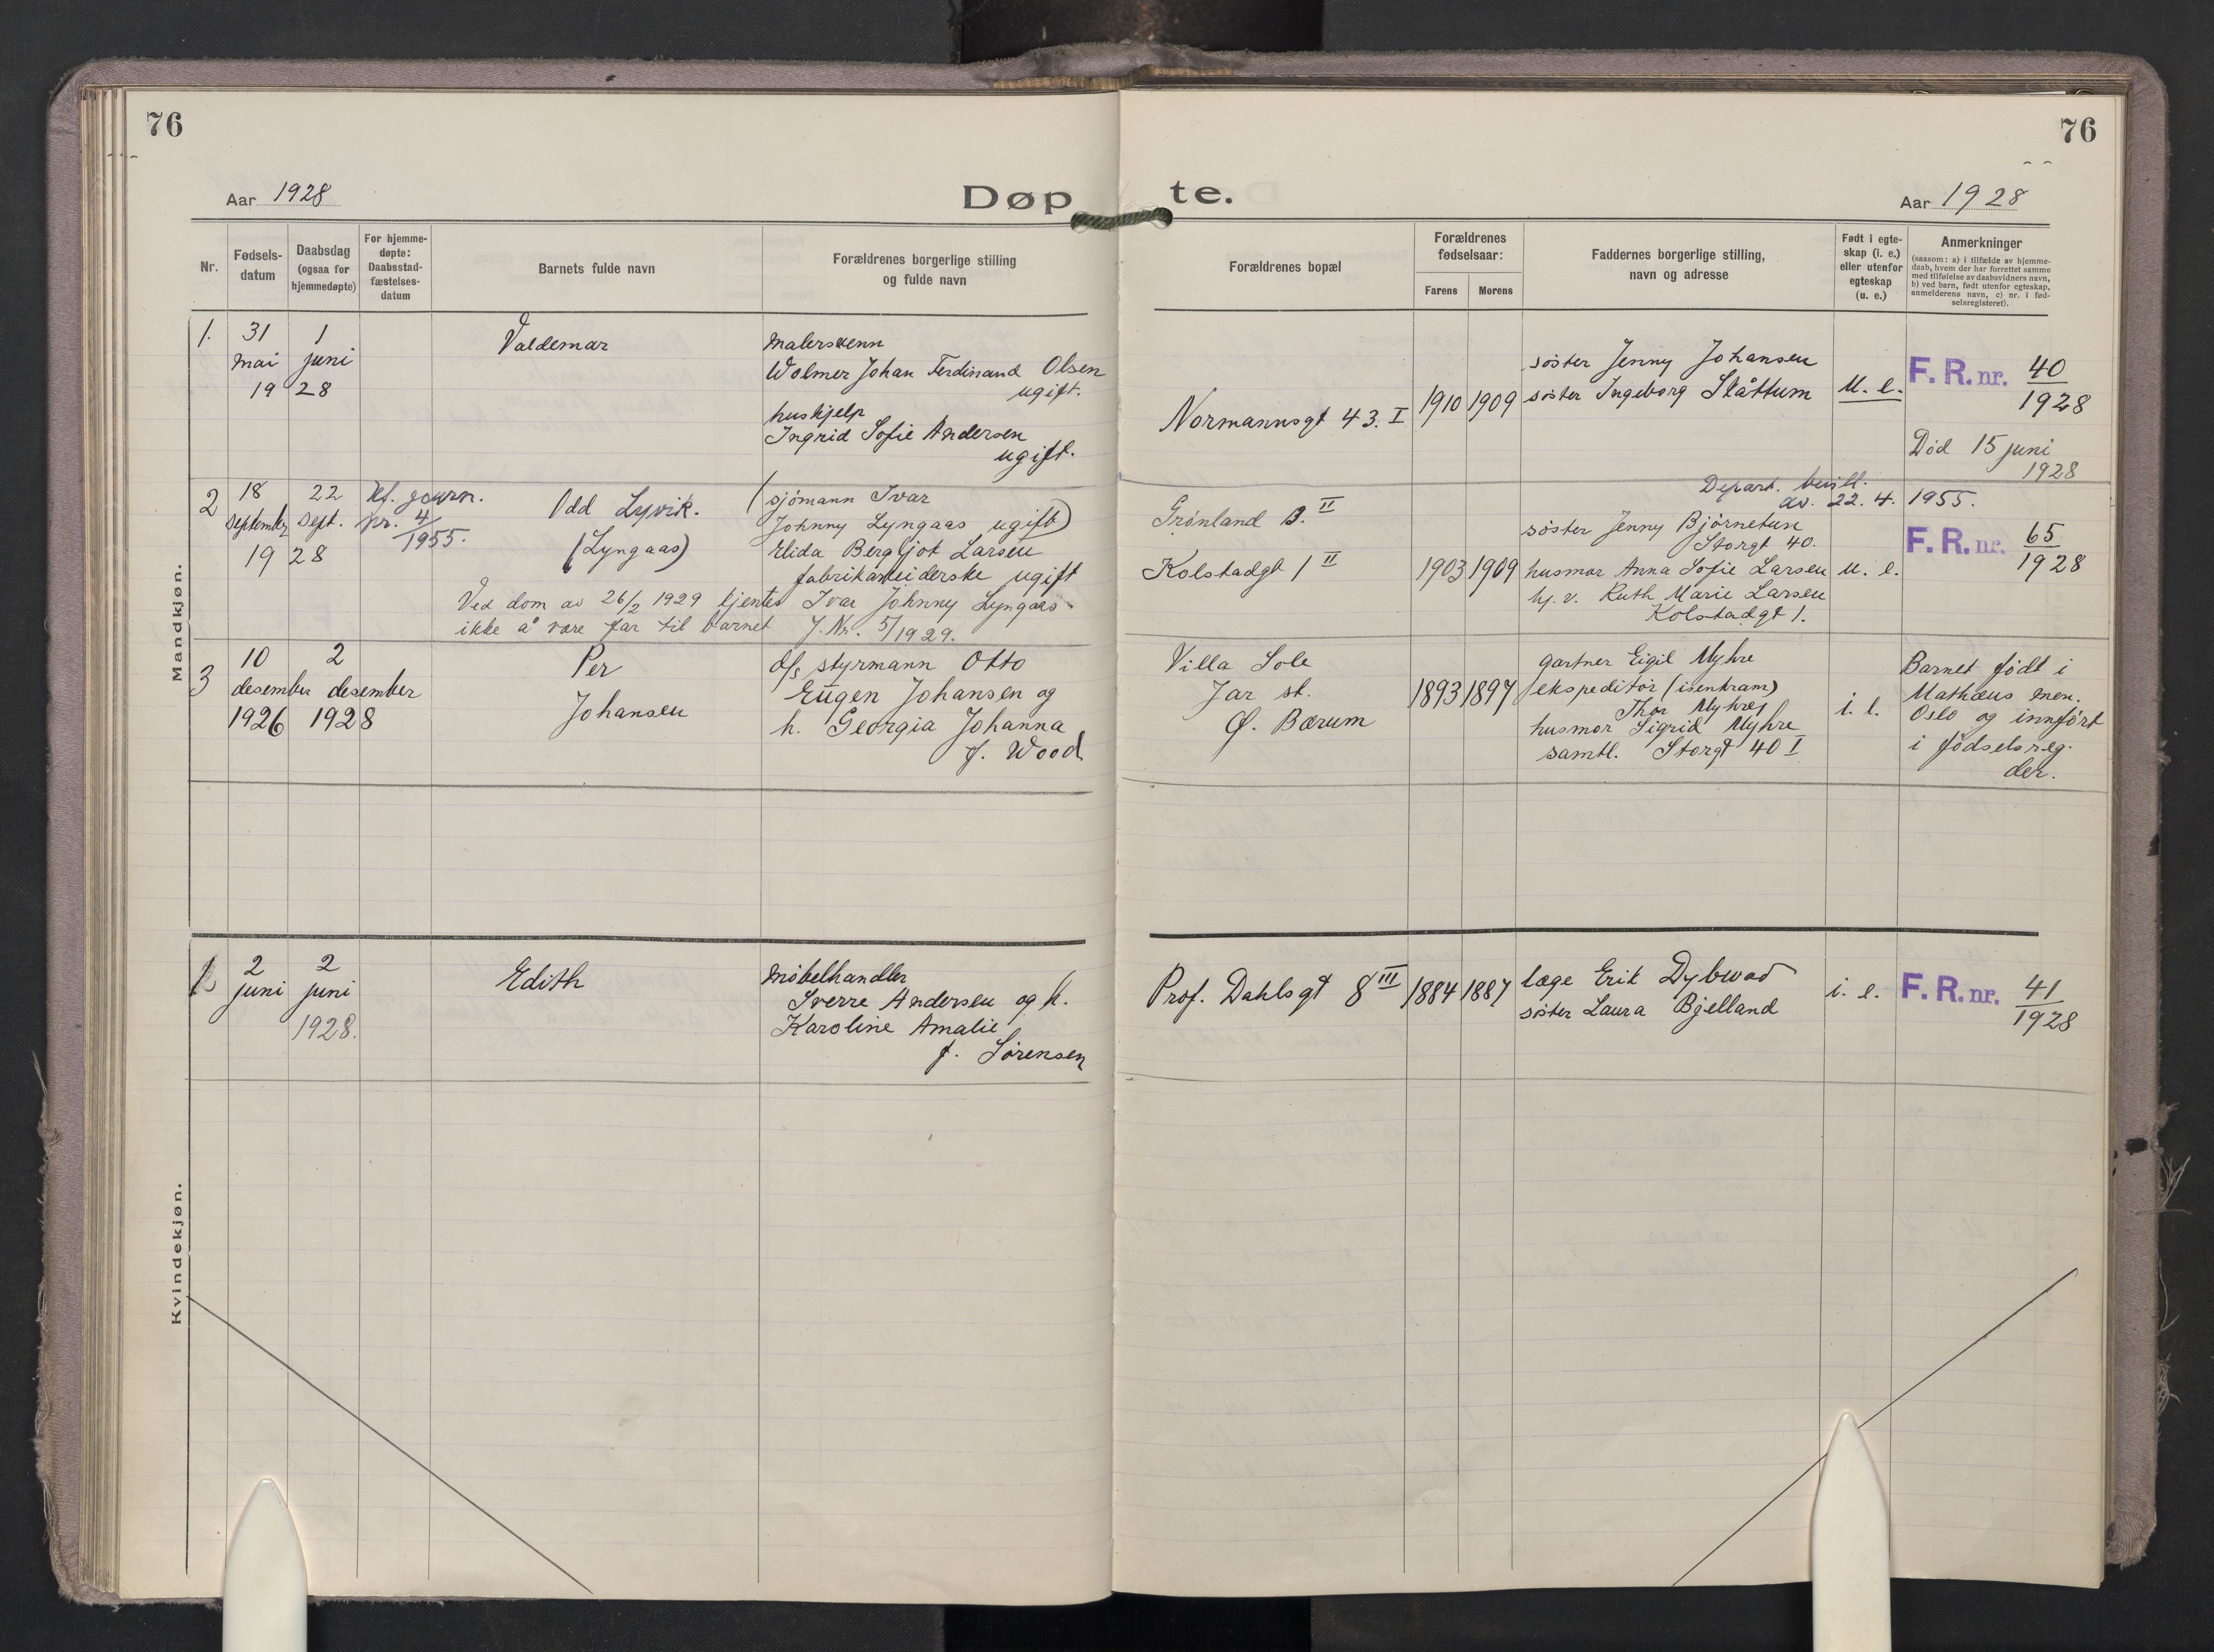 76
76
Aar 1928
Døpte.
Aar 1928
Nr.
Fødselsdatum
Daabsdag (ogsaa for hjemmedøpte)
For hjemmedøpte: Daabsstadfæstelsesdatum
Barnets fulde navn
Forældrenes borgerlige stilling og fulde navn
Forældrenes bopæl
Forældrenes fødselsaar:
Farens
Morens
Faddernes borgerlige stilling, navn og adresse
Født i egteskap (i. e.) eller utenfor egteskap (u. e.)
Anmerkninger
(saasom: a) i tilfælde av hjemmedaab, hvem der har forrettet samme med tilføielse av daabsvidners navn, b) ved barn, født utenfor egteskap, anmelderens navn, c) nr. i fødselsregisteret).
Mandkjøn.
1. 31 mai 1928
1 juni
Valdemar
malersvenn
Wolmer Johan Ferdinand Olsen
ugift.
hushjelp
Ingrid Sofie Andersen
ugift.
Normannsgt 43. I
1910 1909
søster Jenny Johansen
søster Ingeborg Slåttum
u. e.
F. R. nr. 40/1928
Død 15 juni
1928
2 18 september 1928
22 sept.
Kf. journ.
nr. 4/1955.
Odd Lyvik.
(Lyngaas)
(sjømann Ivar
Johnny Lyngaas ugift)
Elida Bergljot Larsen
fabrikarbeiderske ugift
Ved dom av 26/2 1929 kjentes Ivar Johnny Lyngaas
ikke å være far til barnet J. Nr. 5/1929.
Grønland 13. II
Kolstadgt 1 II
1903 1909
Depart. bevill.
av. 22. 4. 1955.
søster Jenny Bjørnetun
Storgt 40.
husmor Anna Sofie Larsen
hj. v. Ruth Marie Larsen
Kolstadgt 1.
u. e.
F. R. nr. 65/1928
3 10 desember 1926
2 desember 1928
Per
Johansen
d/s styrmann Otto
Eugen Johansen og
h. Georgia Johanna
f. Wood
Villa Sole
Jar st.
Ø. Bærum
1893 1897
gartner Eigil Myhre
ekspeditør (isenkram)
Thor Myhre
husmor Sigrid Myhre
samtl. Storgt 40 I
i. e.
Barnet født i
Mathæus men.
Oslo og innført
i fødselsreg.
der.
Kvindekjøn.
1. 2 juni
2 juni
1928.
Edith
møbelhandler
Sverre Andersen og h.
Karoline Amalie
f. Sørensen
Prof. Dahlsgt 8 III
1884 1887
læge Erik Dybwad
søster Laura Bjelland
i. e.
F. R. nr. 41/1928